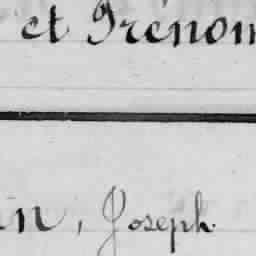 et Prénom
n, Joseph